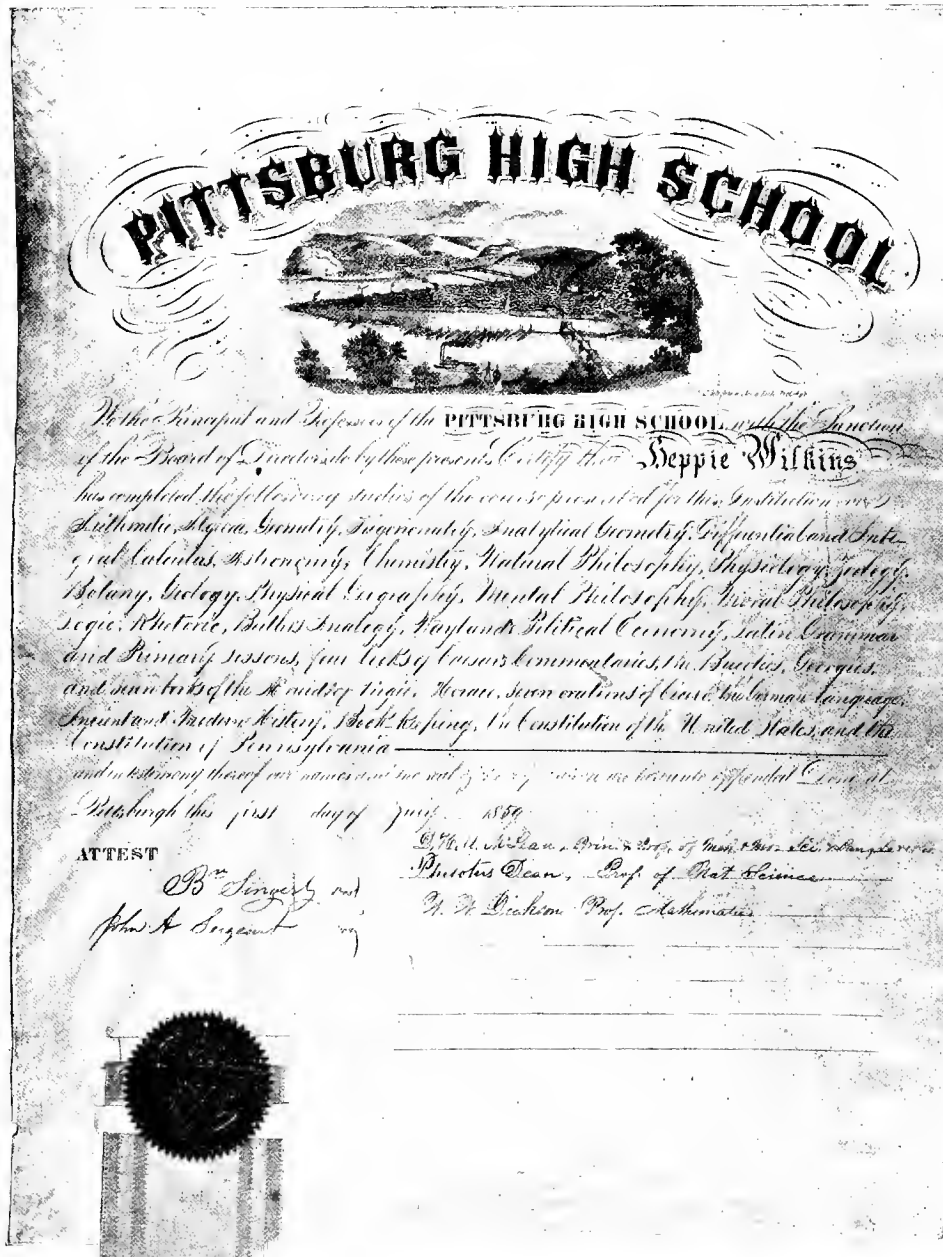 PITTSBURG HIGH SCHOOL
We the Principal and Professors of the PITTSBURG HIGH SCHOOL, with the Sanction
of the Board of Directors do by these presents Certify that Heppie Wilkins
has completed the following studies of the course prescribed for this Institution
Arithmetic, Algebra, Geometry, Trigonometry, Analytical Geometry, Differential and Inte-
gral Calculus, Astronomy, Chemistry, Natural Philosophy, Physiology, Zoology,
Botany, Geology, Physical Geography, Mental Philosophy, Moral Philosophy,
Logic, Rhetoric, Butler's Analogy, Wayland's Political Economy, Latin Grammar
and Primary Lessons, four books of Caesar's Commentaries, the Bucolics, Georgics,
and seven books of the Æneid of Virgil, Horace, seven orations of Cicero, the German language,
Ancient and Modern History, Book-keeping, the Constitution of the United States, and the
Constitution of Pennsylvania
and in testimony thereof our names and the seal are hereunto appended Done at
Pittsburgh this first day of July 1859
ATTEST
Bn Singerly
John A Sergeant
McLean, Prin. & Prof. of
Philotus Dean, Prof. of Nat Science
Dickson Prof. Mathematics